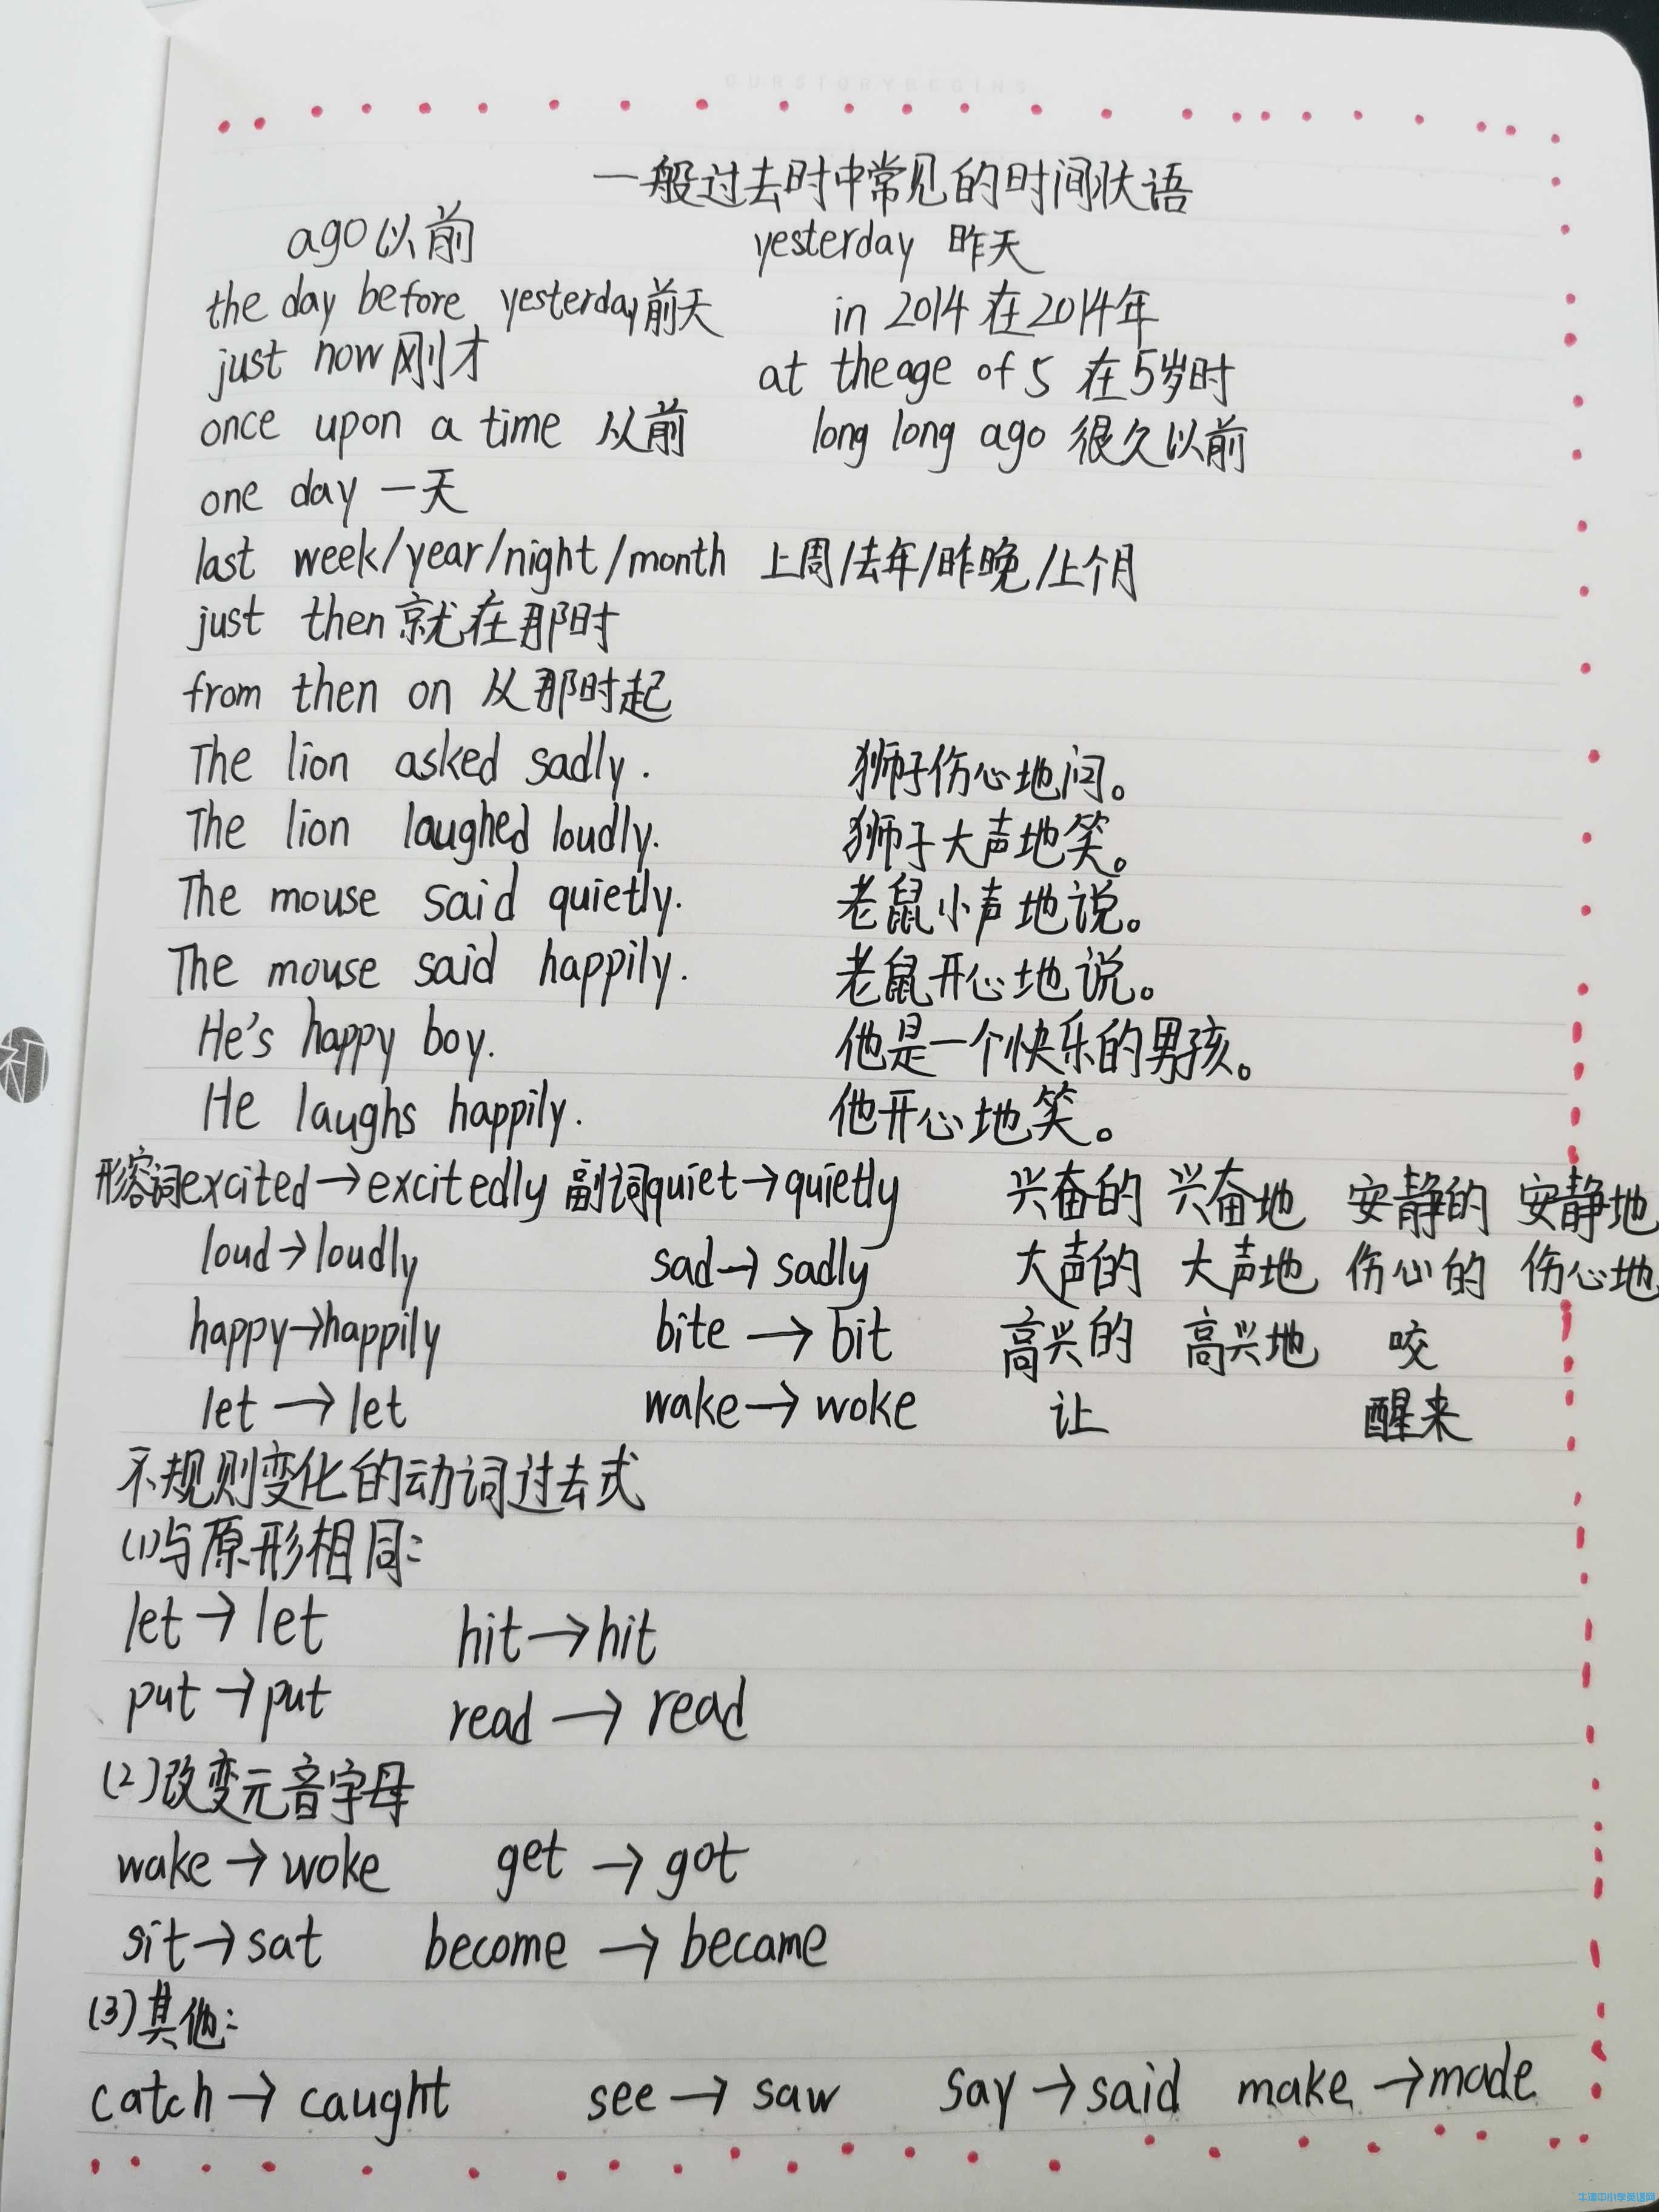 OURSTORYBEGINS
一般过去时中常见的时间状语
ago以前 yesterday 昨天
the day before yesterday前天 in 2014 在2014年
just now刚才 at the age of 5 在5岁时
once upon a time 以前 long long ago 很久以前
one day 一天
last week/year/night/month 上周/去年/昨晚/上个月
just then就在那时
from then on 从那时起
The lion asked sadly. 狮子伤心地问。
The lion laughed loudly. 狮子大声地笑。
The mouse said quietly. 老鼠小声地说。
The mouse said happily. 老鼠开心地说。
He's happy boy. 他是一个快乐的男孩。
He laughs happily. 他开心地笑。
形容词excited→excitedly 副词quiet→quietly 兴奋的 兴奋地 安静的 安静地
loud→loudly sad→sadly 大声的 大声地 伤心的 伤心地
happy→happily bite→bit 高兴的 高兴地 咬
let→let wake→woke 让 醒来
不规则变化的动词过去式
(1)与原形相同:
let→let hit→hit
put→put read→read
(2)改变元音字母
wake→woke get→got
sit→sat become→became
(3)其他:
catch→caught see→saw say→said make→made